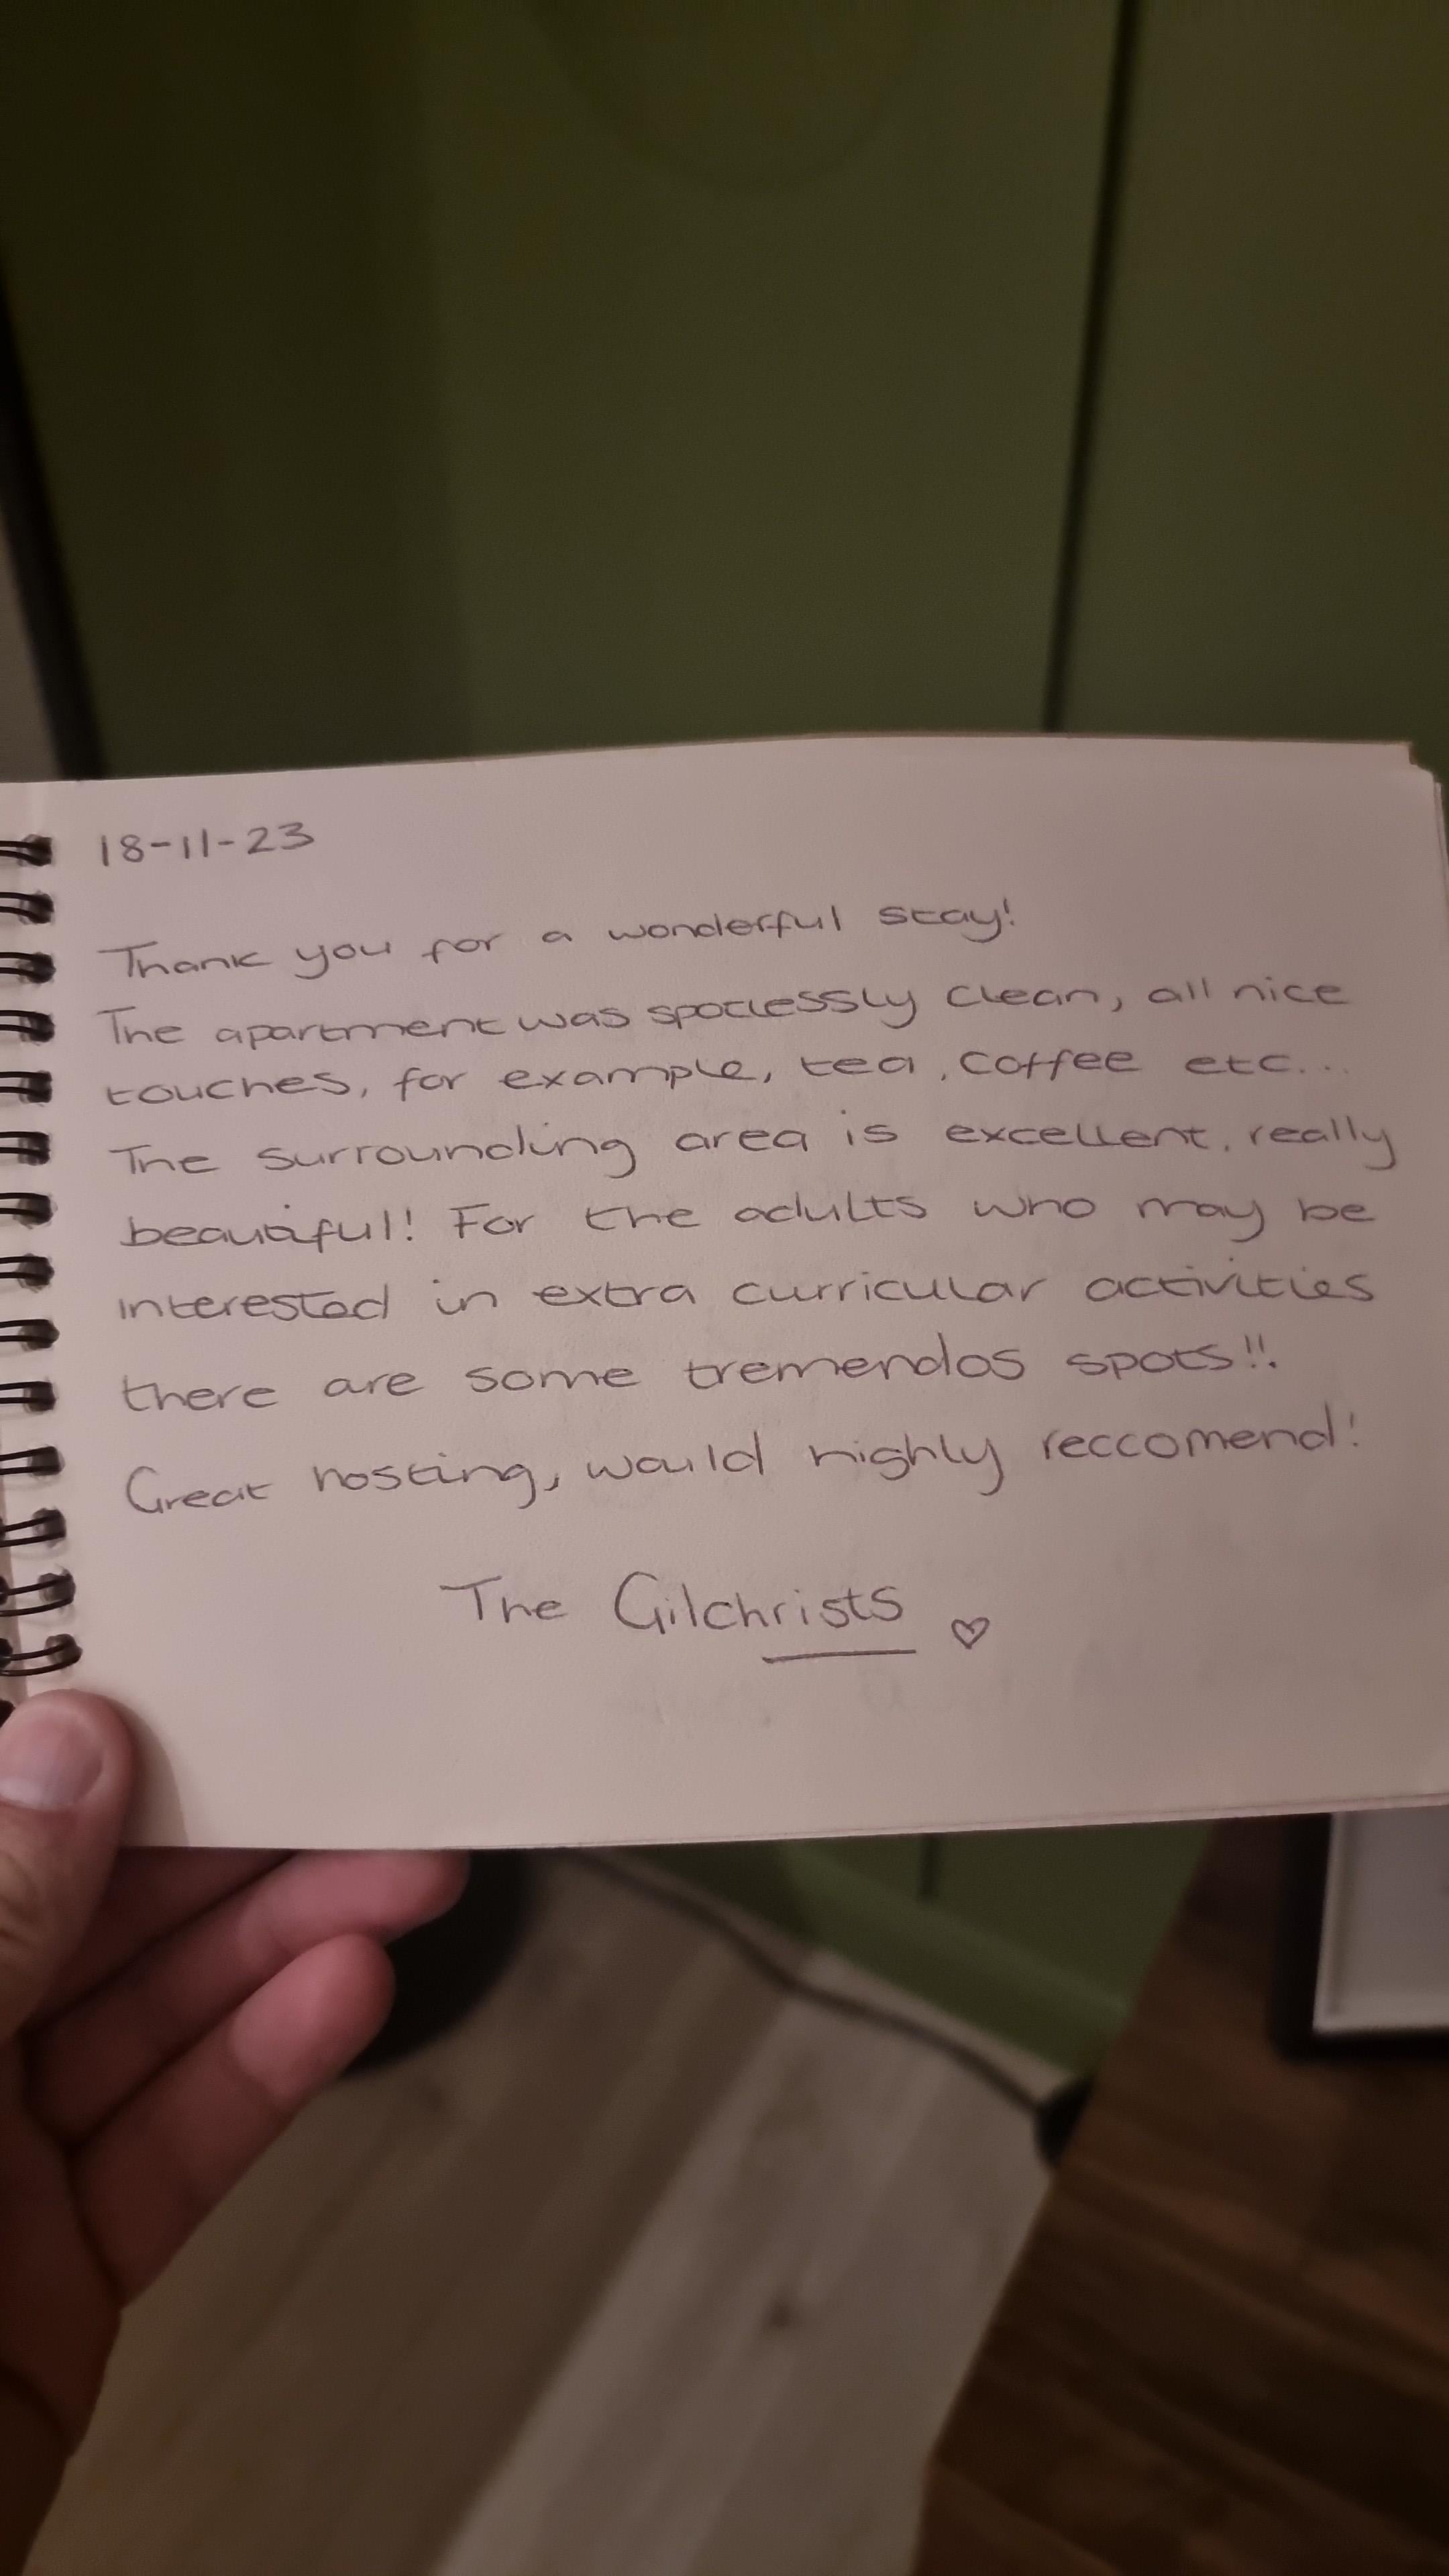 18-11-23
Thank you for a wonderful stay!
The apartment was spotlessly clean, all nice
touches, for example, tea, coffee etc...
The surrounding area is excellent, really
beautiful! For the adults who may be
interested in extra curricular activities
there are some tremendos spots!!
Great hosting, would highly reccomend!
The Gilchrists ♡